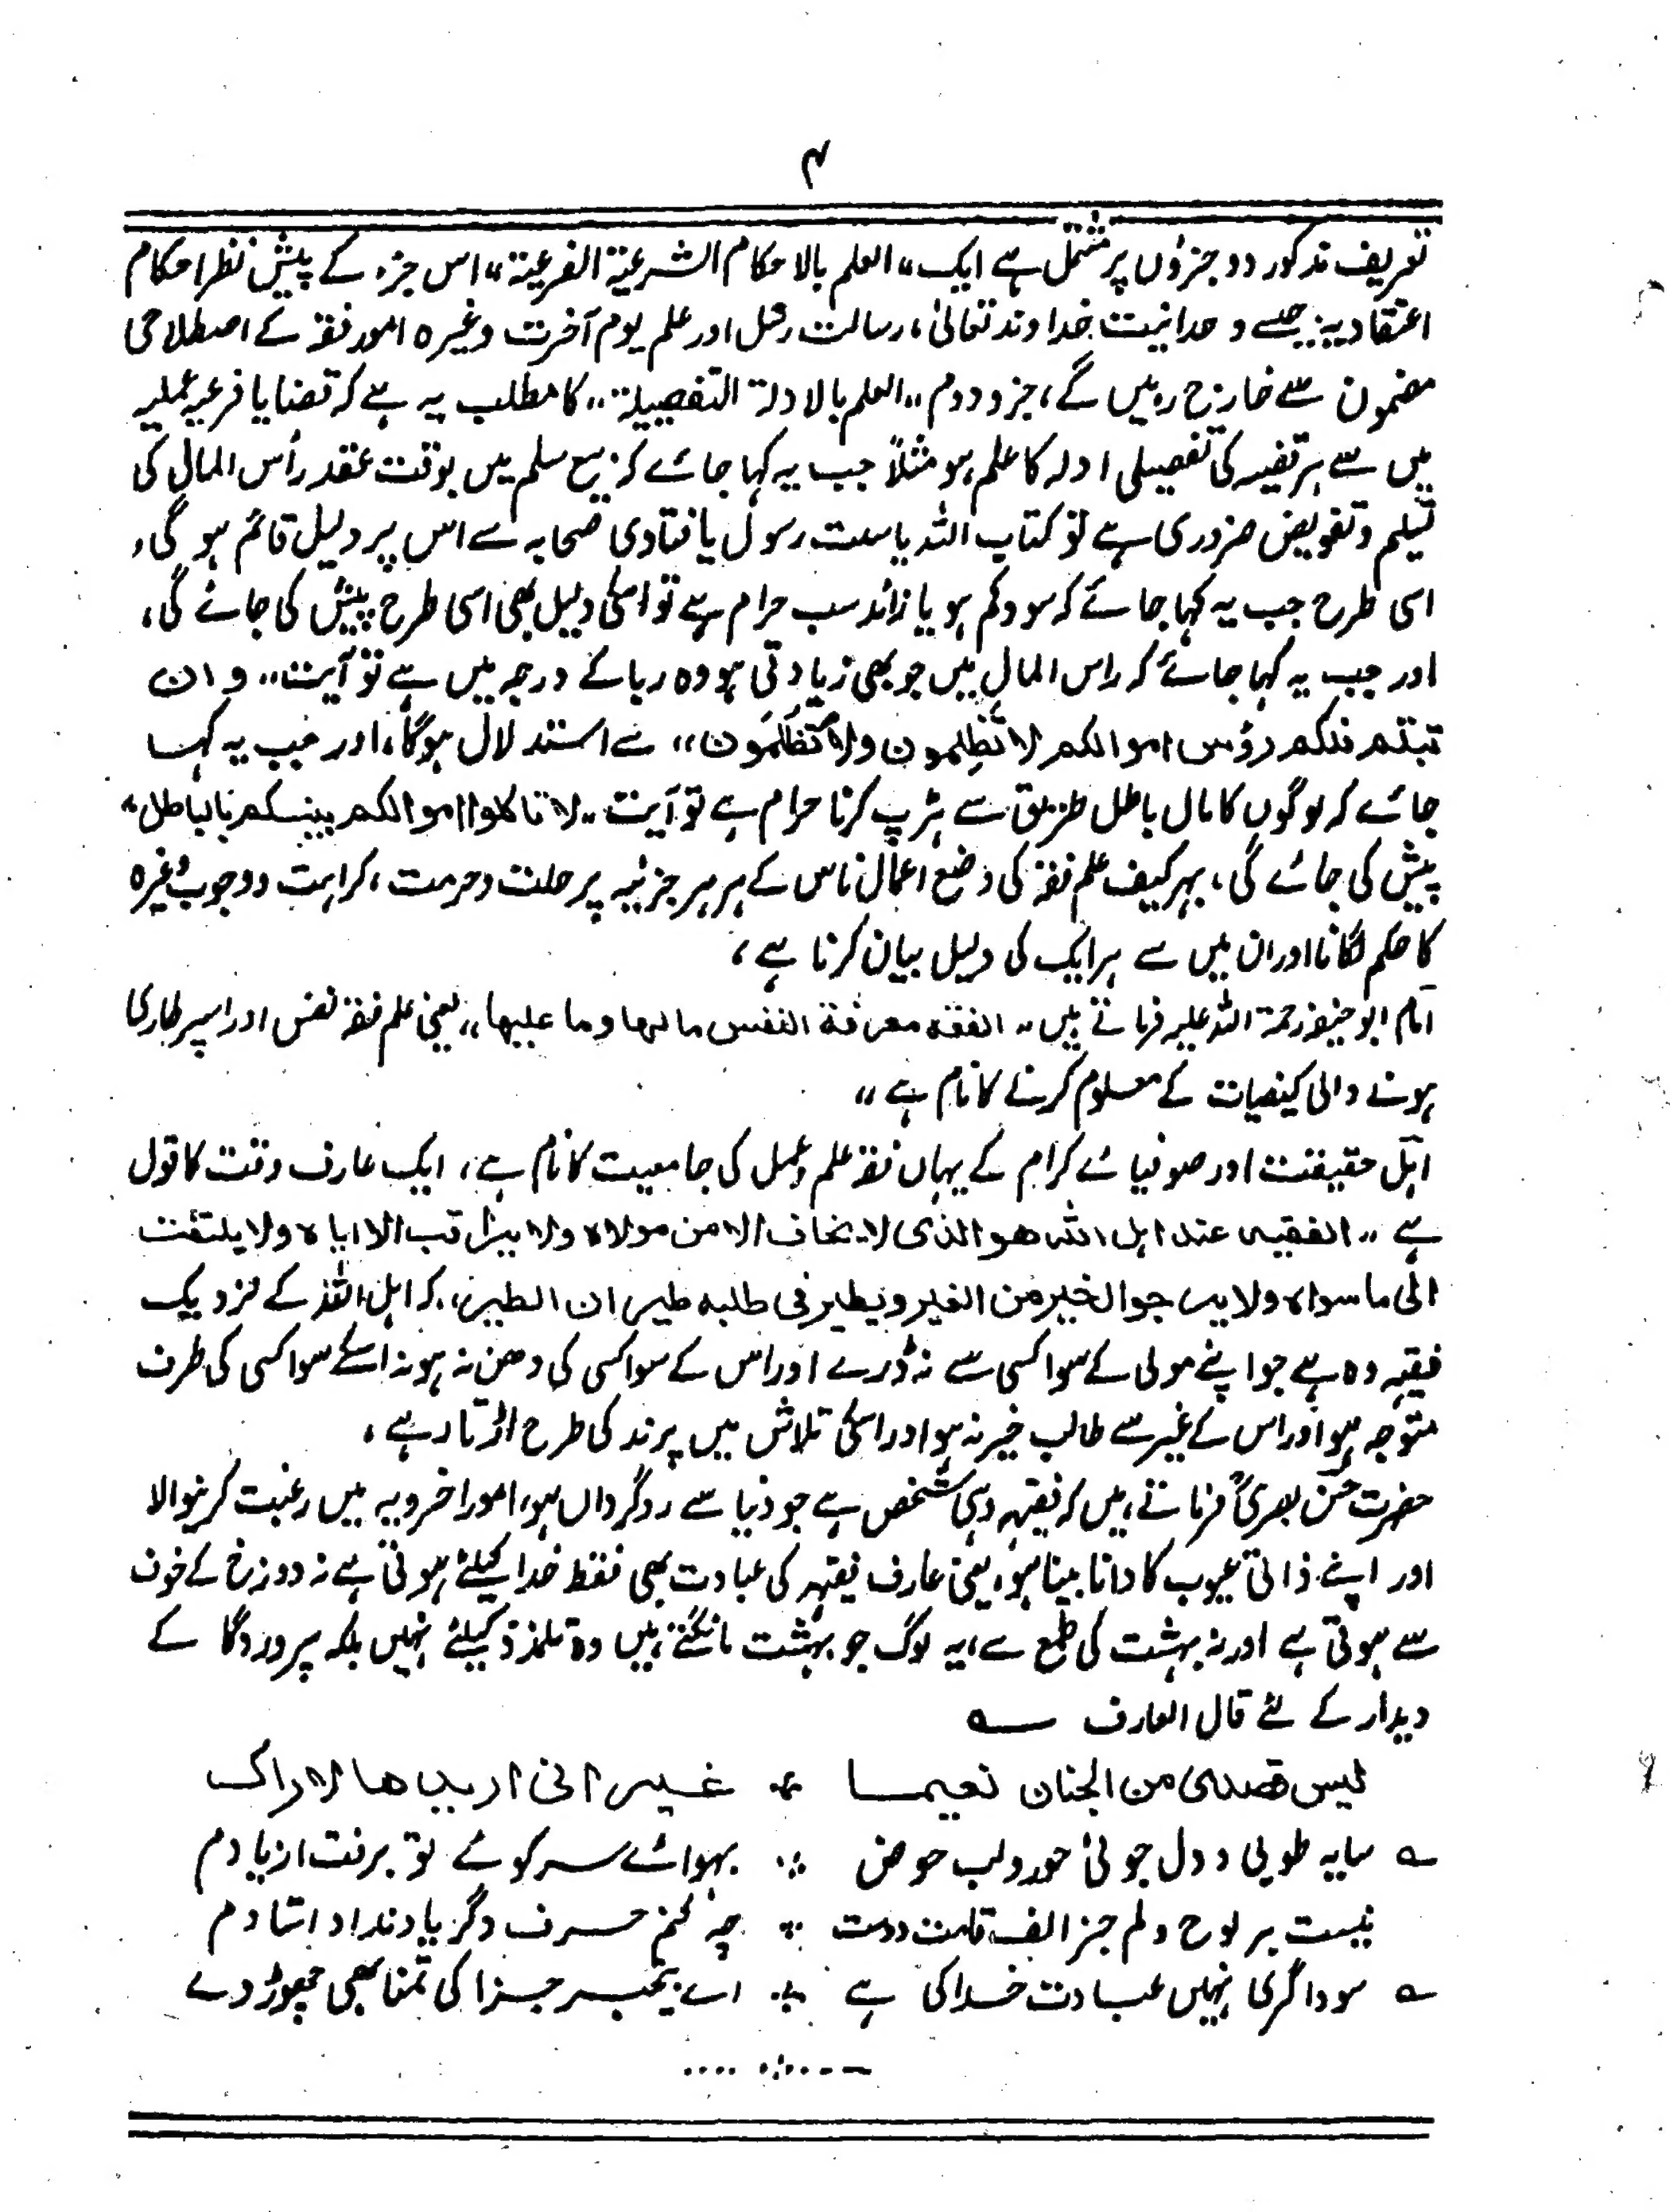 ۴
تعریف مذکور دو جزؤں پر مشتمل ہے ایک ،،العلم بالاحکام الشرعیۃ الفرعیۃ،، اس جزء کے پیش نظر احکام
اعتقادیہ جیسے وحدانیت خداوند تعالیٰ، رسالت رسل اور علم یوم آخرت وغیرہ امور فقہ کے اصطلاحی
مضمون سے خارج رہیں گے، جزو دوم ،،العلم بالادلۃ التفصیلۃ،، کا مطلب یہ ہے کہ قضایا فرعیہ عملیہ
میں سے ہر قضیہ کی تفصیلی ادلہ کا علم ہو مثلاً جب یہ کہا جائے کہ بیع سلم میں بوقت عقد رأس المال کی
تسلیم وتفویض ضروری ہے تو کتاب اللہ یا سنت رسول یا فتاویٰ صحابہ سے اس پر دلیل قائم ہو گی،
اسی طرح جب یہ کہا جائے کہ سود کم ہو یا زائد سب حرام ہے تو اسکی دلیل بھی اسی طرح پیش کی جائے گی،
اور جب یہ کہا جائے کہ راس المال میں جو بھی زیادتی ہو وہ ربا کے درجہ میں ہے تو آیت ،،وان
تبتم فلکم رؤس اموالکم لا تَظلِمون ولا تُظلَمُون،، سے استدلال ہوگا، اور جب یہ کہا
جائے کہ لوگوں کا مال باطل طریق سے ہڑپ کرنا حرام ہے تو آیت ،،لا تاکلوا اموالکم بینکم بالباطل،،
پیش کی جائے گی، بہر کیف علم فقہ کی وضع اعمال ناس کے ہر ہر جزئیہ پر حلت وحرمت، کراہت ووجوب وغیرہ
کا حکم لگانا اور ان میں سے ہر ایک کی دلیل بیان کرنا ہے،
امام ابو حنیفہ رحمۃ اللہ علیہ فرماتے ہیں ،،الفقہ معرفۃ النفس مالہا وما علیہا،، یعنی علم فقہ نفس اور اسپر طاری
ہونے والی کیفیات کے معلوم کرنے کا نام ہے،،
اہل حقیقت اور صوفیائے کرام کے یہاں فقہ علم وعمل کی جامعیت کا نام ہے، ایک عارف وقت کا قول
ہے ،،الفقیہ عند اہل اللہ ھو الذی لا یخاف الا من مولاہ ولا یراقب الا ایاہ ولا یلتفت
الی ما سواہ ولا یرجو الخیر من الغیر ویطیر فی طلبہ طیران الطیر،، کہ اہل اللہ کے نزدیک
فقیہ وہ ہے جو اپنے مولی کے سوا کسی سے نہ ڈرے اور اس کے سوا کسی کی دھن نہ ہو نہ اسکے سوا کسی کی طرف
متوجہ ہو اور اس کے غیر سے طالب خیر نہ ہو اور اسکی تلاش میں پرند کی طرح اڑتا رہے،
حضرت حسن بصریؒ فرماتے ہیں کہ فقیہ وہی شخص ہے جو دنیا سے روگرداں ہو، امور اخرویہ میں رغبت کرنیوالا
اور اپنے ذاتی عیوب کا دانا بینا ہو، یعنی عارف فقیہ کی عبادت بھی فقط خدا کیلئے ہوتی ہے نہ دوزخ کے خوف
سے ہوتی ہے اور نہ بہشت کی طمع سے، یہ لوگ جو بہشت مانگتے ہیں وہ تلذذ کیلئے نہیں بلکہ پروردگا کے
دیدار کے لئے قال العارف ؎
لیس قصدی من الجنان نعیما ⁂ غیر انی اریدھا لاراک
؎ سایہ طوبی ودل جوئی حور ولب حوض ⁂ بہوائے سر کوئے تو برفت از یادم
نیست بر لوح دلم جز الف قامت دوست ⁂ چہ کنم حرف دگر یاد نداد استادم
؎ سوداگری نہیں عبادت خدا کی ہے ⁂ اے بیخبر جزا کی تمنا بھی چھوڑ دے